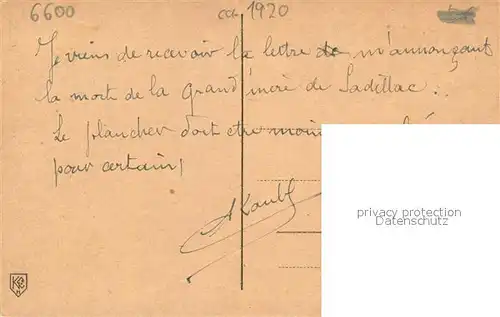 6600 1920
Je viens de recevoir la lettre de m'annonçant
la mort de la Grand'mère de Ladillac :
Le plancher doit etre moin
pour certains
privacy protection
OLDTHING.com